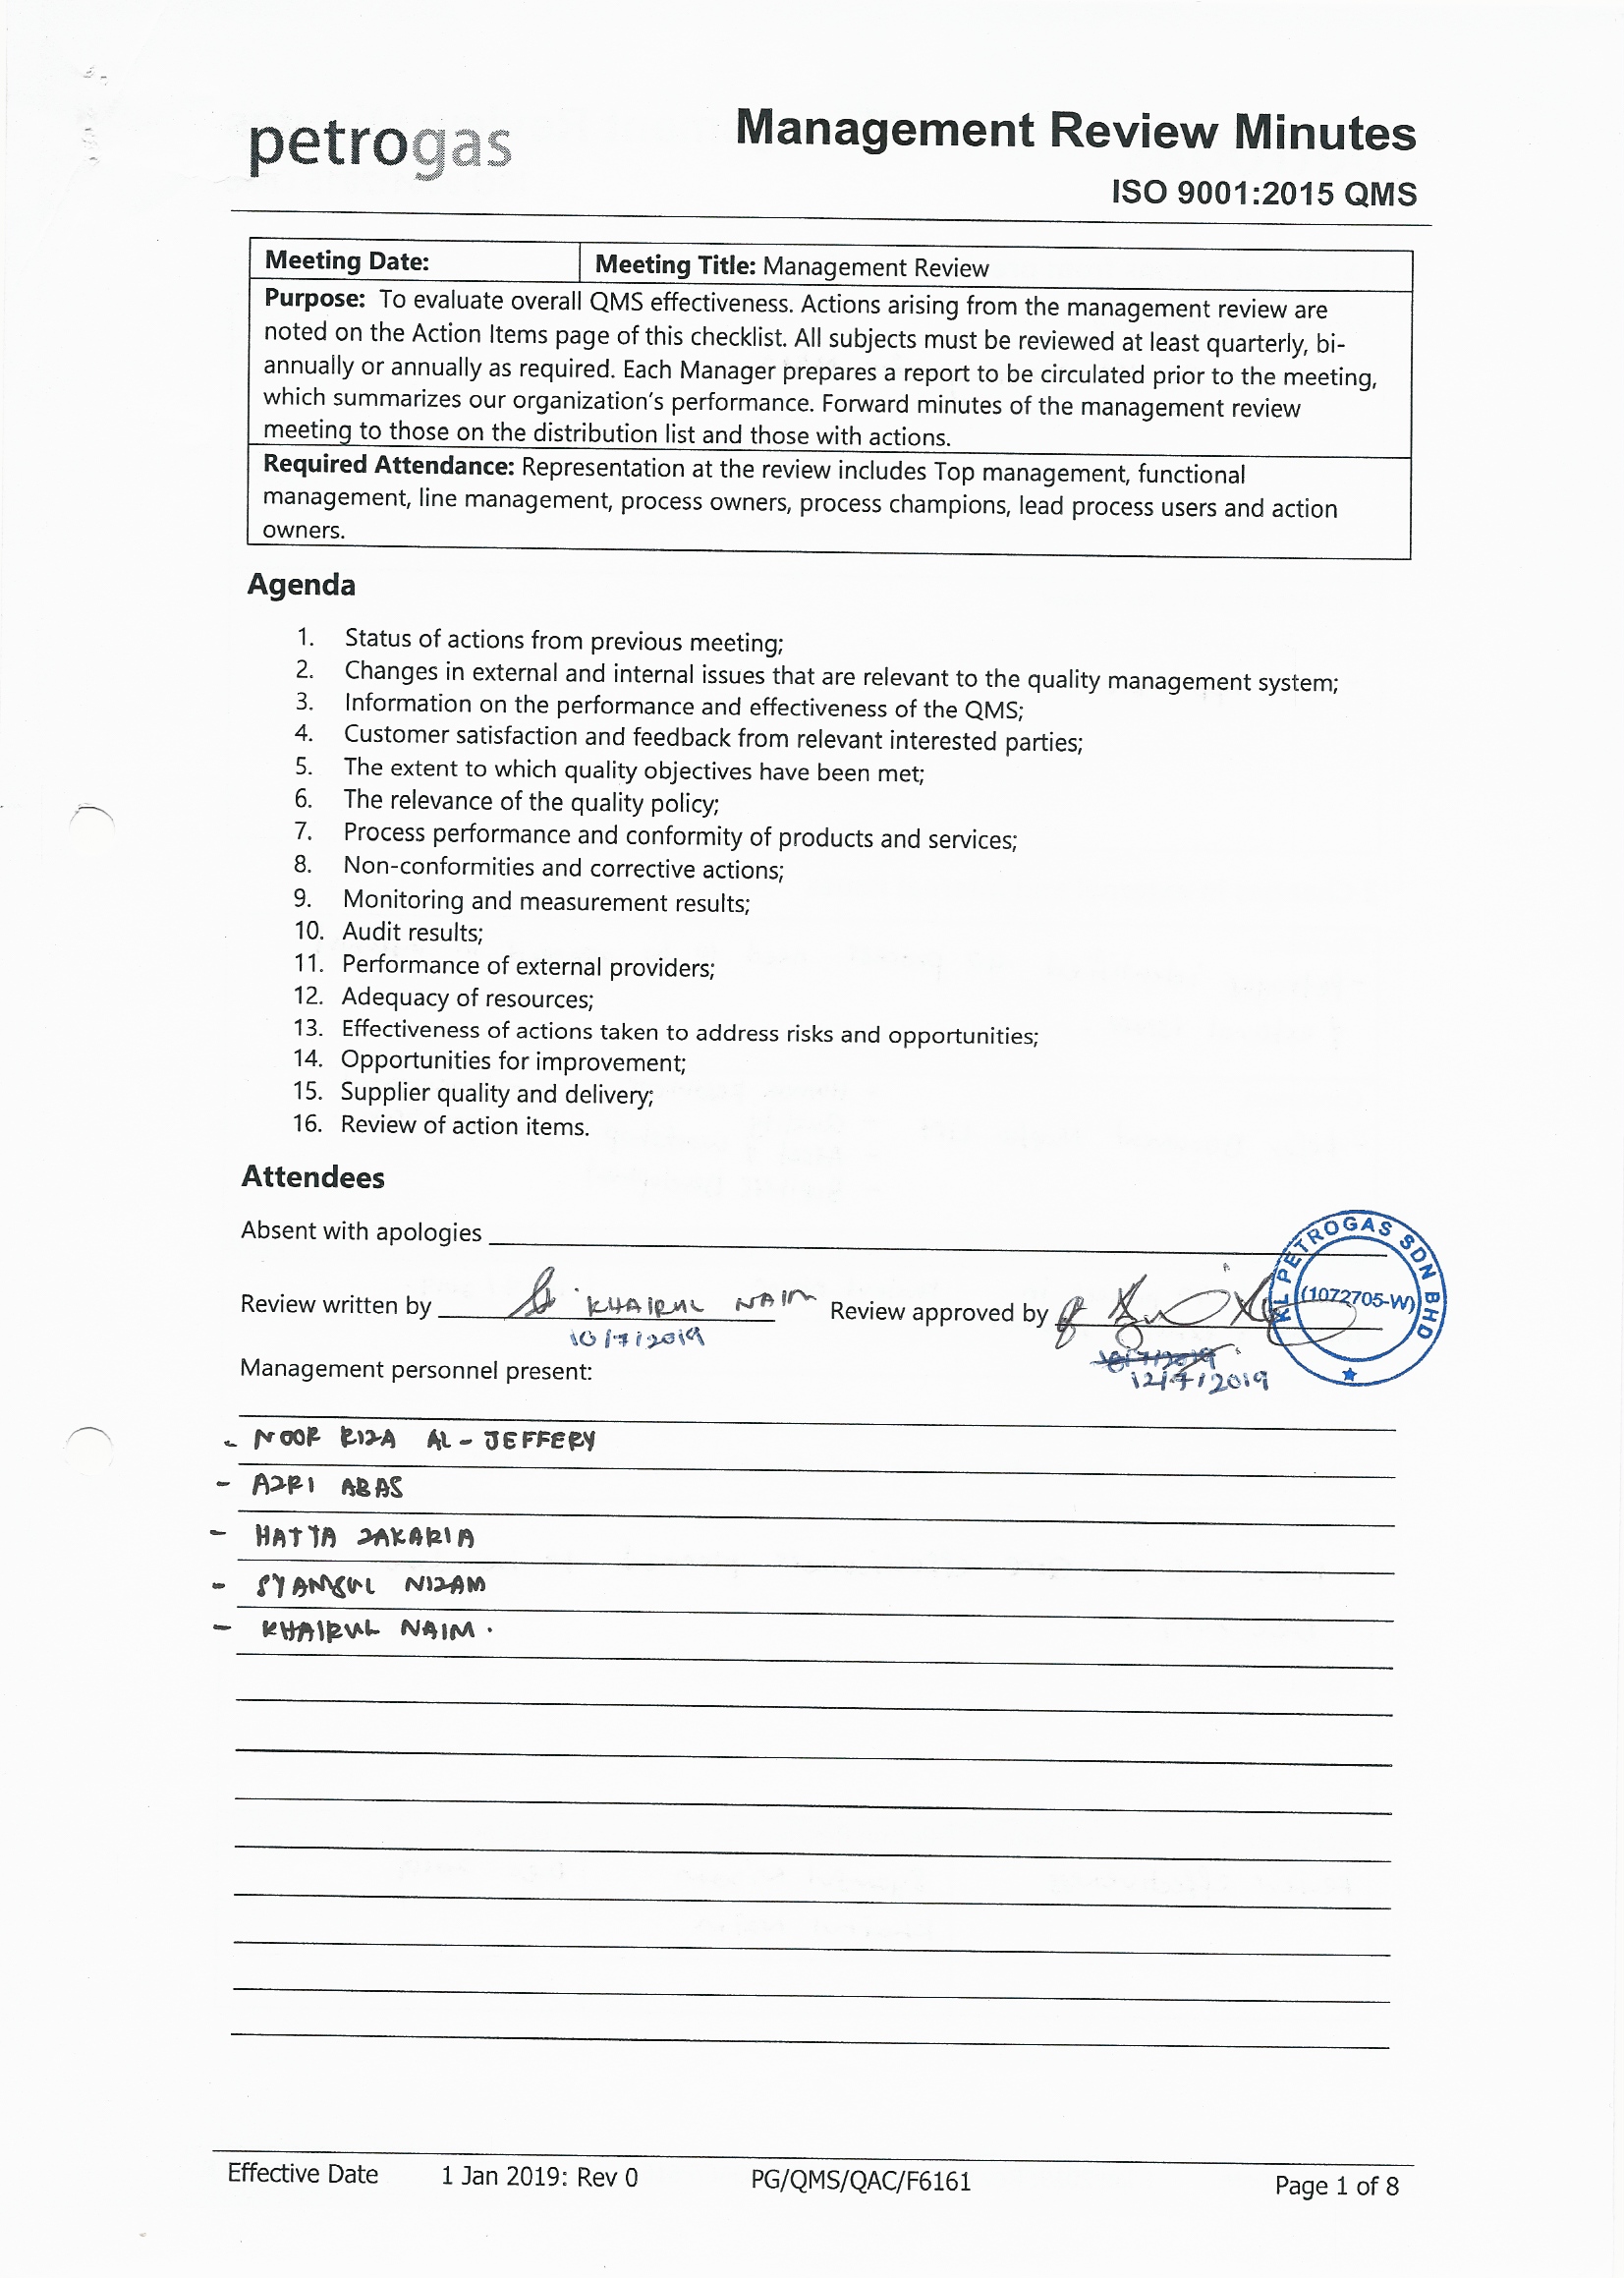 petrogas
Management Review Minutes
ISO 9001:2015 QMS
Meeting Date:
Meeting Title: Management Review
Purpose: To evaluate overall QMS effectiveness. Actions arising from the management review are
noted on the Action Items page of this checklist. All subjects must be reviewed at least quarterly, bi-
annually or annually as required. Each Manager prepares a report to be circulated prior to the meeting,
which summarizes our organization's performance. Forward minutes of the management review
meeting to those on the distribution list and those with actions.
Required Attendance: Representation at the review includes Top management, functional
management, line management, process owners, process champions, lead process users and action
owners.
Agenda
1. Status of actions from previous meeting;
2. Changes in external and internal issues that are relevant to the quality management system;
3. Information on the performance and effectiveness of the QMS;
4. Customer satisfaction and feedback from relevant interested parties;
5. The extent to which quality objectives have been met;
6. The relevance of the quality policy;
7. Process performance and conformity of products and services;
8. Non-conformities and corrective actions;
9. Monitoring and measurement results;
10. Audit results;
11. Performance of external providers;
12. Adequacy of resources;
13. Effectiveness of actions taken to address risks and opportunities;
14. Opportunities for improvement;
15. Supplier quality and delivery;
16. Review of action items.
Attendees
Absent with apologies
Review written by KHAIRUL NAIM Review approved by
10/7/2019
12/7/2019
KL PETROGAS SDN BHD
(1072705-W)
Management personnel present:
- NOOR RIZA AL-JEFFERY
- AZRI ABAS
- HATTA ZAKARIA
- SYAMSUL NIZAM
- KHAIRUL NAIM.
Effective Date 1 Jan 2019: Rev 0 PG/QMS/QAC/F6161 Page 1 of 8